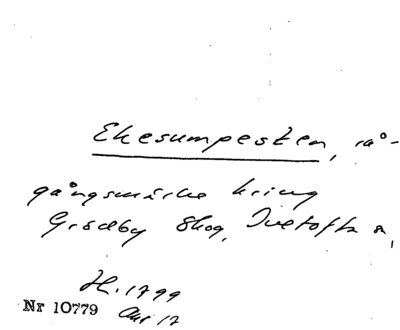 Ekesumpesten, rå-
gångsmärke kring
Grödby Skog, Tuetofta s,
H. 1799
Nr 10779 Akt 12